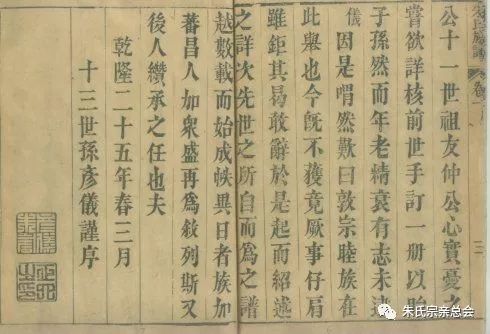 朱氏族譜
公十一世祖友仲公心實憂之
嘗欲詳核前世手訂一册以貽
子孫然而年老精衰有志未逮
儀因是喟然歎曰敦宗睦族在
此舉也今旣不獲竟厥事仔肩
雖鉅其曷敢辭於是起而紹述
之詳次先世之所自而爲之譜
越數載而始成帙異日者族加
蕃昌人加衆盛再爲敍列斯又
後人纘承之任也夫
乾隆二十五年春三月
十三世孫彥儀謹序
朱氏宗亲总会